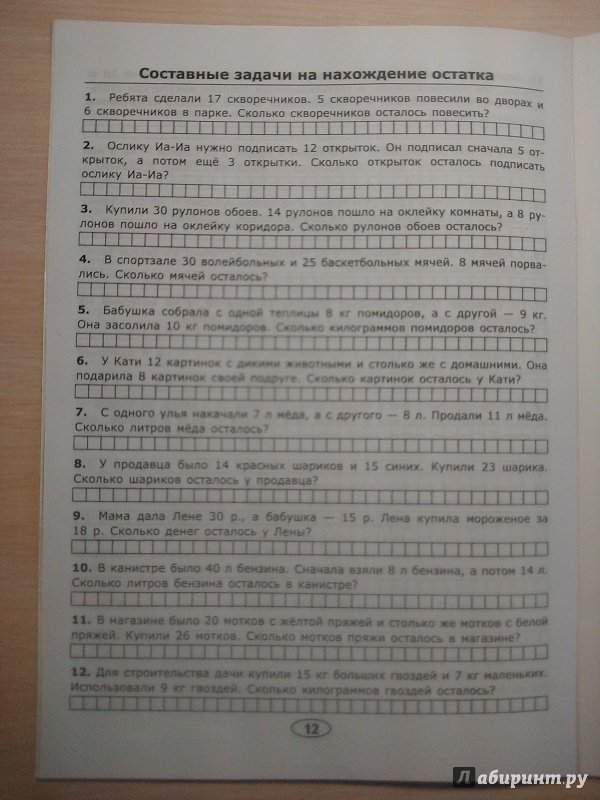 Составные задачи на нахождение остатка
1. Ребята сделали 17 скворечников. 5 скворечников повесили во дворах и
6 скворечников в парке. Сколько скворечников осталось повесить?
2. Ослику Иа-Иа нужно подписать 12 открыток. Он подписал сначала 5 от-
крыток, а потом ещё 3 открытки. Сколько открыток осталось подписать
ослику Иа-Иа?
3. Купили 30 рулонов обоев. 14 рулонов пошло на оклейку комнаты, а 8 ру-
лонов пошло на оклейку коридора. Сколько рулонов обоев осталось?
4. В спортзале 30 волейбольных и 25 баскетбольных мячей. 8 мячей порва-
лись. Сколько мячей осталось?
5. Бабушка собрала с одной теплицы 8 кг помидоров, а с другой — 9 кг.
Она засолила 10 кг помидоров. Сколько килограммов помидоров осталось?
6. У Кати 12 картинок с дикими животными и столько же с домашними. Она
подарила 8 картинок своей подруге. Сколько картинок осталось у Кати?
7. С одного улья накачали 7 л мёда, а с другого — 8 л. Продали 11 л мёда.
Сколько литров мёда осталось?
8. У продавца было 14 красных шариков и 15 синих. Купили 23 шарика.
Сколько шариков осталось у продавца?
9. Мама дала Лене 30 р., а бабушка — 15 р. Лена купила мороженое за
18 р. Сколько денег осталось у Лены?
10. В канистре было 40 л бензина. Сначала взяли 8 л бензина, а потом 14 л.
Сколько литров бензина осталось в канистре?
11. В магазине было 20 мотков с жёлтой пряжей и столько же мотков с белой
пряжей. Купили 26 мотков. Сколько мотков пряжи осталось в магазине?
12. Для строительства дачи купили 15 кг больших гвоздей и 7 кг маленьких.
Использовали 9 кг гвоздей. Сколько килограммов гвоздей осталось?
12
Лабиринт.ру